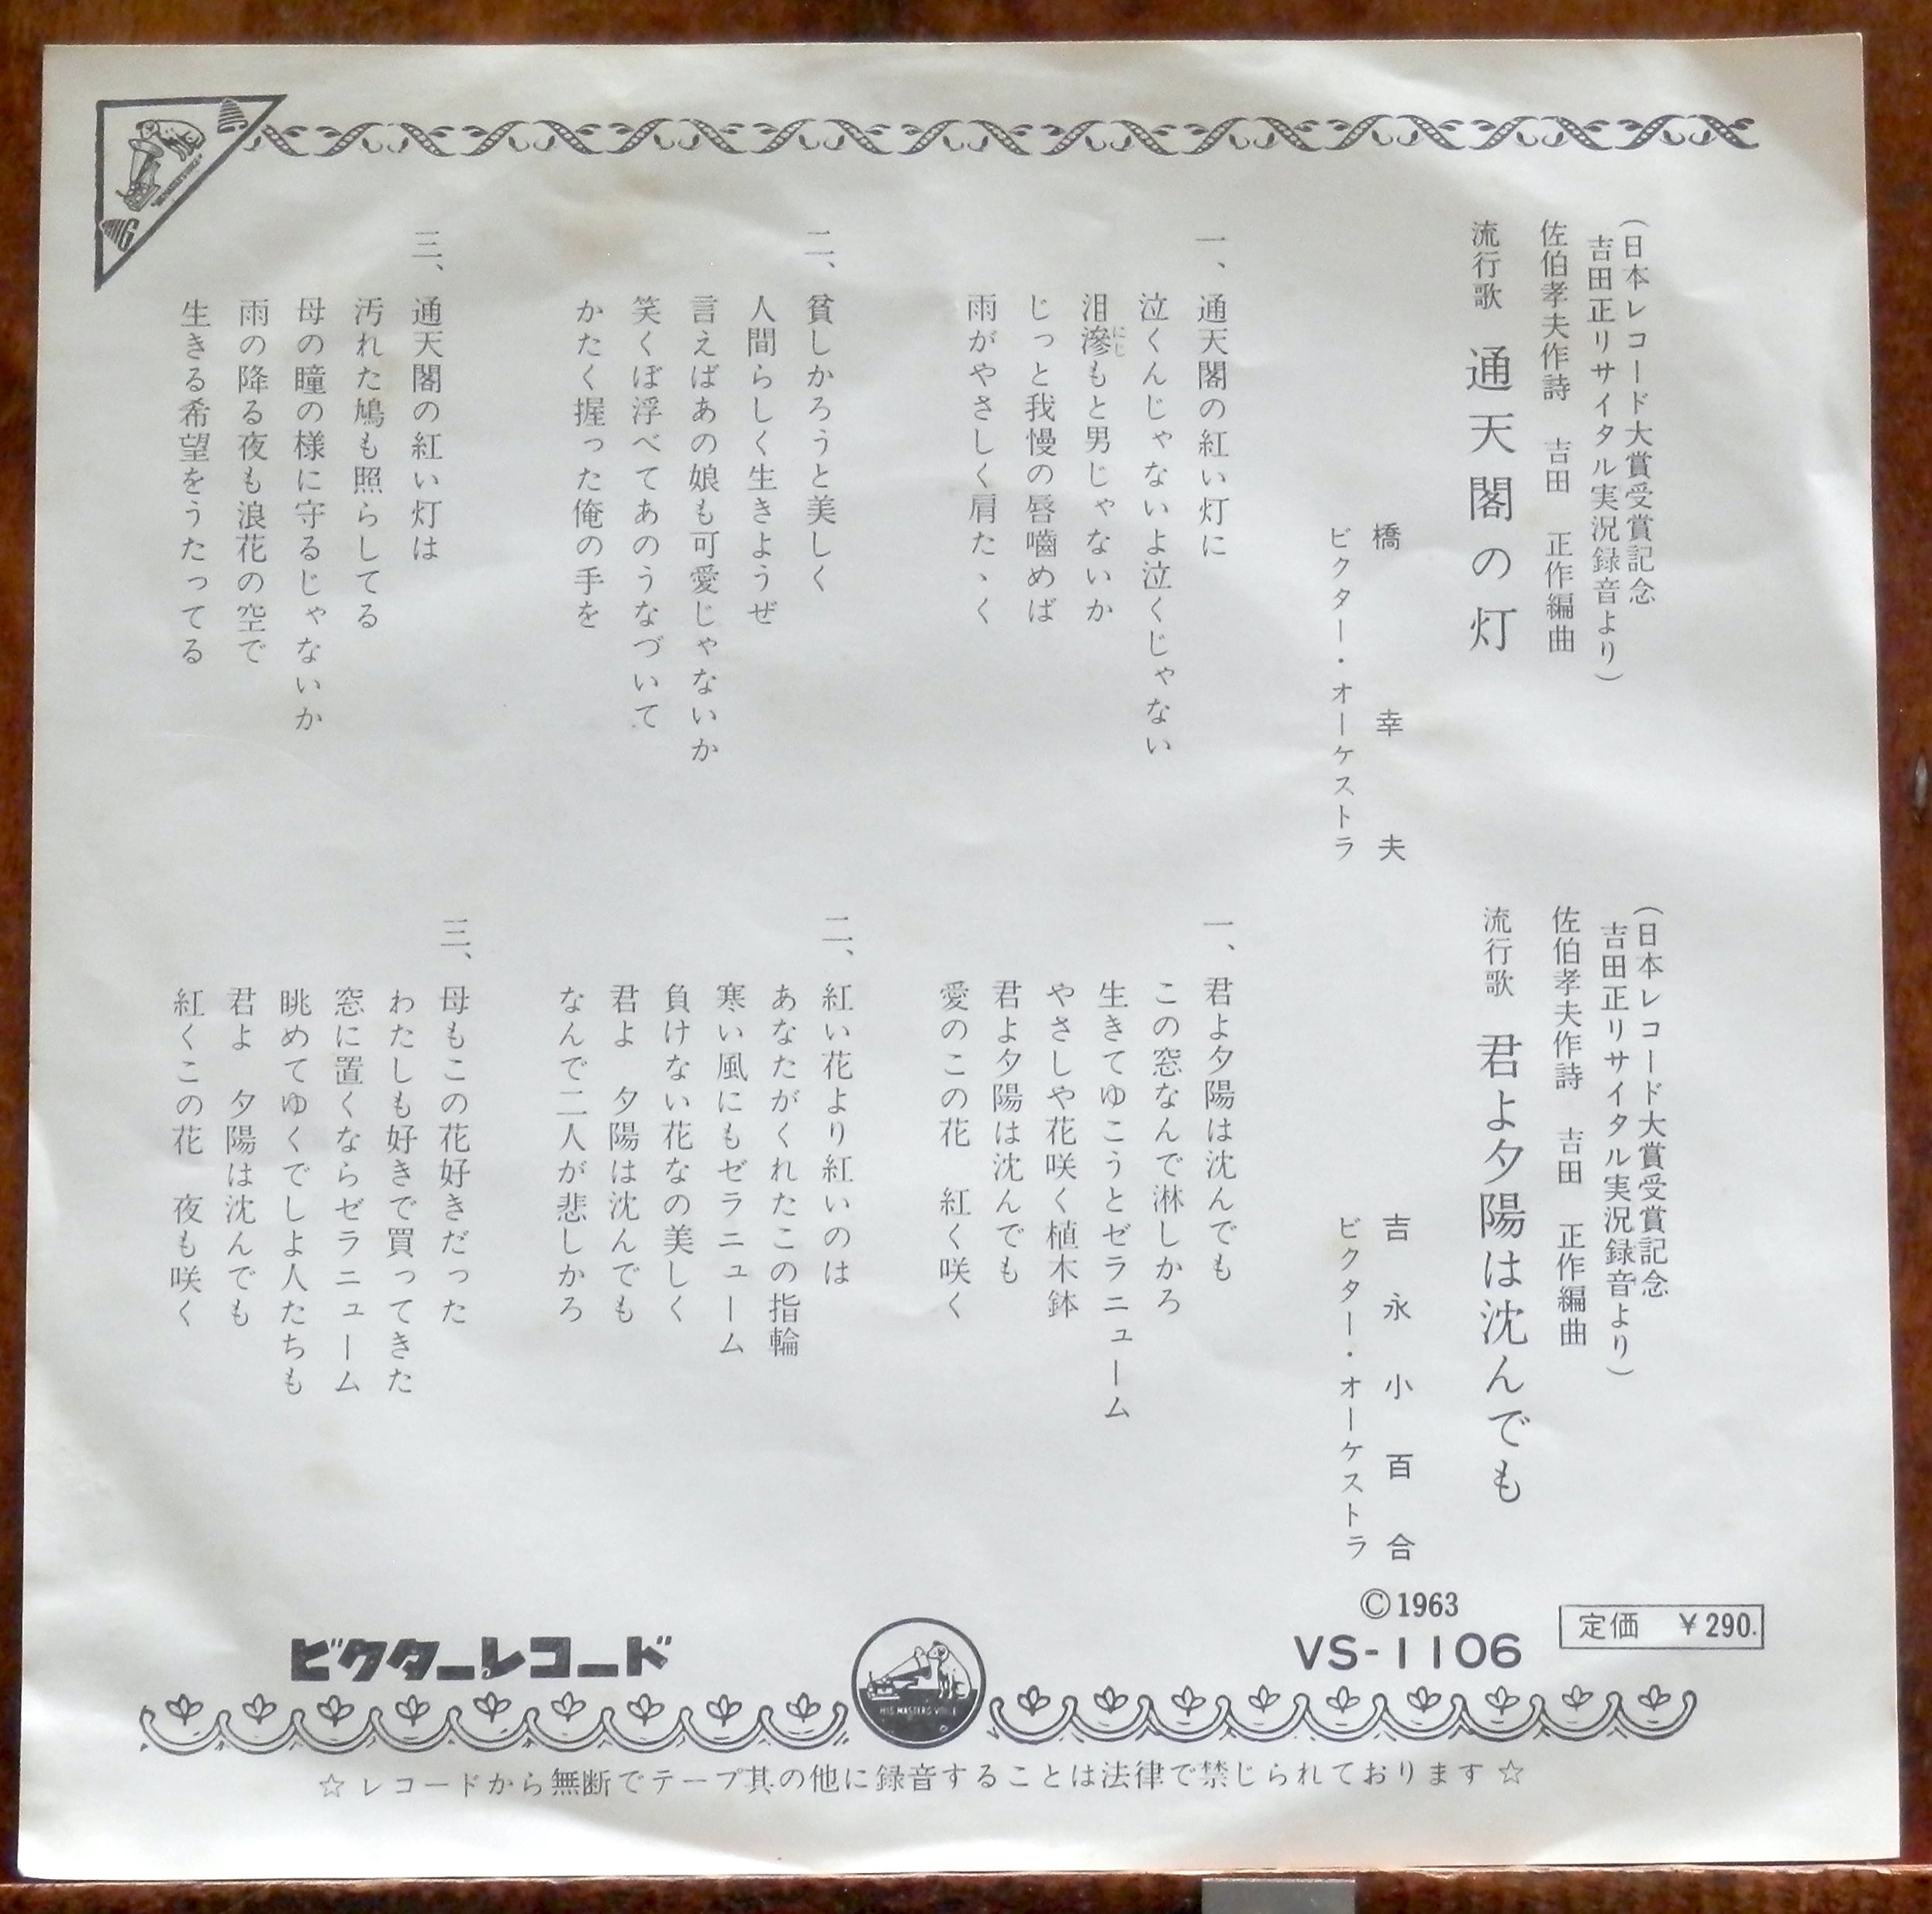 （日本レコード大賞受賞記念
吉田正リサイタル実況録音より）
佐伯孝夫作詩　吉田　正作編曲
流行歌　通天閣の灯
橋　幸　夫
ビクター・オーケストラ
一、通天閣の紅い灯に
泣くんじゃないよ泣くじゃない
泪滲もと男じゃないか
にじ
じっと我慢の唇嚙めば
雨がやさしく肩たゝく
二、貧しかろうと美しく
人間らしく生きようぜ
言えばあの娘も可愛じゃないか
笑くぼ浮べてあのうなづいて
かたく握った俺の手を
三、通天閣の紅い灯は
汚れた鳩も照らしてる
母の瞳の様に守るじゃないか
雨の降る夜も浪花の空で
生きる希望をうたってる
（日本レコード大賞受賞記念
吉田正リサイタル実況録音より）
佐伯孝夫作詩　吉田　正作編曲
流行歌　君よ夕陽は沈んでも
吉永小百合
ビクター・オーケストラ
一、君よ夕陽は沈んでも
この窓なんで淋しかろ
生きてゆこうとゼラニューム
やさしや花咲く植木鉢
君よ夕陽は沈んでも
愛のこの花　紅く咲く
二、紅い花より紅いのは
あなたがくれたこの指輪
寒い風にもゼラニューム
負けない花なの美しく
君よ　夕陽は沈んでも
なんで二人が悲しかろ
三、母もこの花好きだった
わたしも好きで買ってきた
窓に置くならゼラニューム
眺めてゆくでしよ人たちも
君よ　夕陽は沈んでも
紅くこの花　夜も咲く
©1963
VS-1106
定価　￥290.
ビクターレコード
HIS MASTERS VOICE
☆レコードから無断でテープ其の他に録音することは法律で禁じられております☆